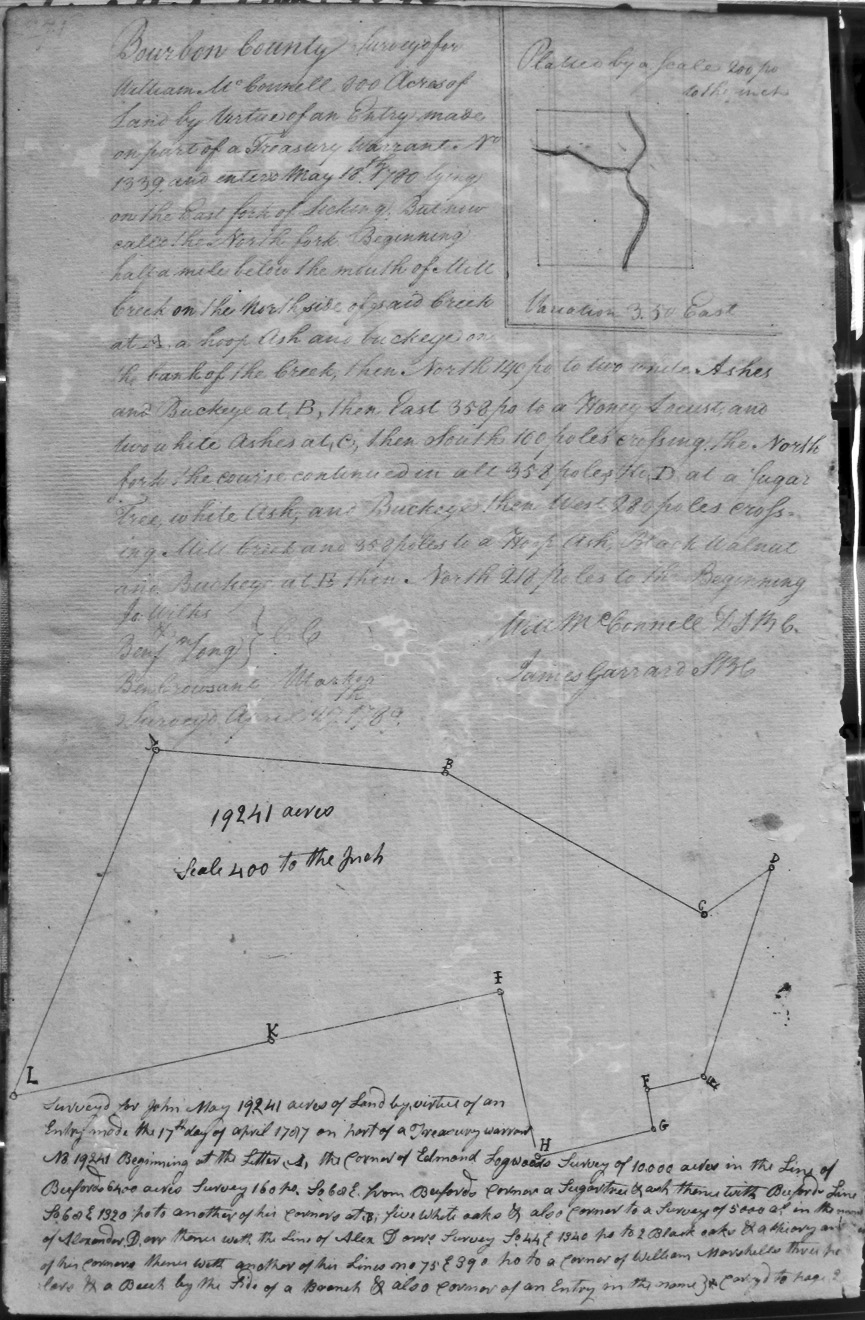 71
Bourbon County Surveyed for
William McConnell 800 Acres of
Land by Virtue of an Entry made
on part of a Treasury Warrant No
1339 and enterd May 18th 1780 lying
on the East fork of Licking, But now
calld the North fork Beginning
half a mile below the mouth of Mill
Creek on the North side of said Creek
at A, a hoop Ash and buckeye on
the bank of the Creek, then North 140 po to two white Ashes
and Buckeye at, B, then East 358 po to a Honey Locust, and
two white Ashes at, C, then South 100 poles crossing, the North
fork the course continued in all 358 poles to, D at a Sugar
Tree, white Ash, and Buckeye then West 280 poles cross-
ing Mill Creek and 358 poles to a Hoop Ash, Black Walnut
and Buckeye at E then North 218 poles to the Beginning
Jo Wilks
Benjn Long } C C
Ben Marker
Surveyd April 1780
Will McConnell D S B C.
James Garrard S B C
Platted by a Scale 200 po
to the inch
Variation 3.50 East
A
B
C
D
E
F
G
H
I
K
L
19241 acres
Scale 400 to the Inch
Surveyd for John May 19241 acres of Land by virtue of an
Entry made the 17th day of april 1787 on part of a Treasury warrant
No 19241 Beginning at the Letter A, the Corner of Edmond Logwoods Survey of 10.000 acres in the Line of
Bufords 6400 acres Survey 160 po. So 68 E. from Bufords Corner a Sugartree & ash thence with Bufords Line
So 68 E 1320 po to another of his corners at B, five White oaks & also Corner to a Survey of 5000 as in the name
of Alexander D orr thence with the Line of Alex D orrs Survey So 44 E 1340 po to 2 Black oaks & a hicory another
of his Corners thence with another of his Lines no 75 E 390 po to a Corner of William Marshalls three po
lars & a Beech by the Side of a Branch & also Corner of an Entry in the name } & Caryd to page 2